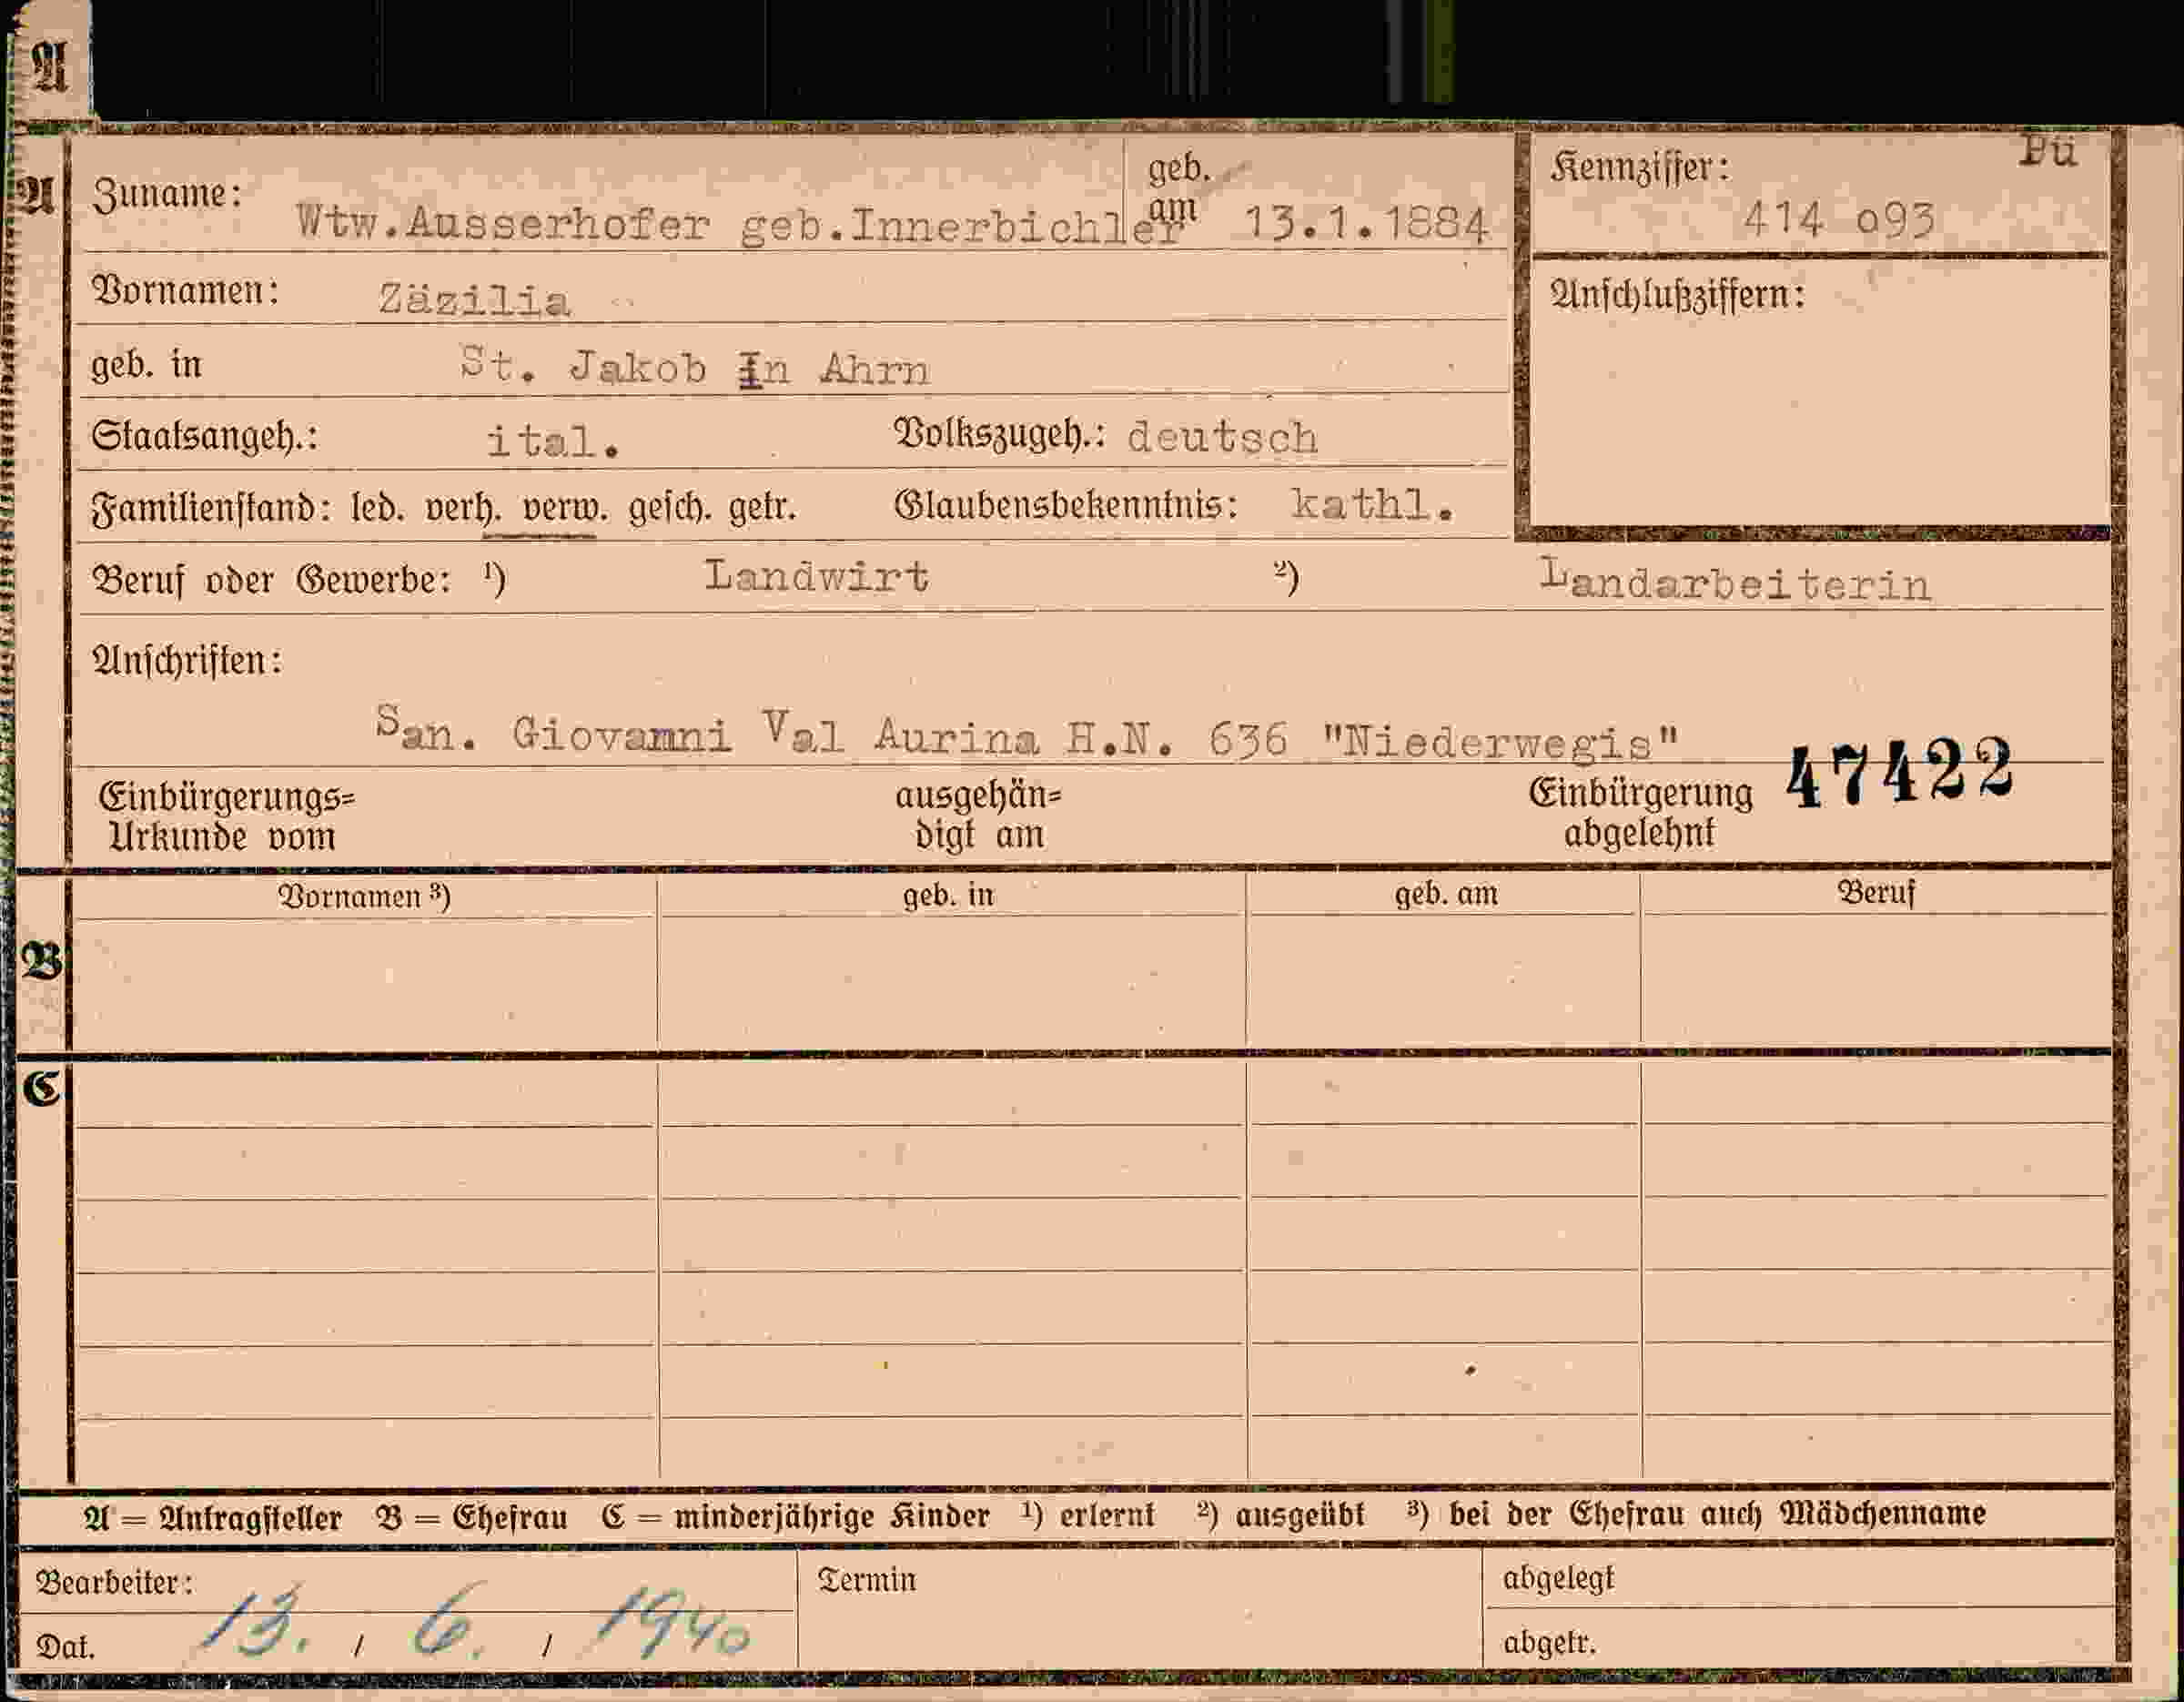 A
A
Zuname: Wtw.Ausserhofer geb.Innerbichler geb. am 13.1.1884
Kennziffer: Pü
414 o93
Vornamen: Zäzilia
Anschlußziffern:
geb. in St. Jakob In Ahrn
Staatsangeh.: ital. Volkszugeh.: deutsch
Familienstand: led. verh. verw. gesch. getr. Glaubensbekenntnis: kathl.
Beruf oder Gewerbe: ¹) Landwirt ²) Landarbeiterin
Anschriften:
San. Giovanni Val Aurina H.N. 636 "Niederwegis"
47422
Einbürgerungs= ausgehän= Einbürgerung
Urkunde vom digt am abgelehnt
Vornamen ³) geb. in geb. am Beruf
B
C
A = Antragsteller B = Ehefrau C = minderjährige Kinder ¹) erlernt ²) ausgeübt ³) bei der Ehefrau auch Mädchenname
Bearbeiter: Termin abgelegt
Dat. 13. / 6. / 1940 abgetr.